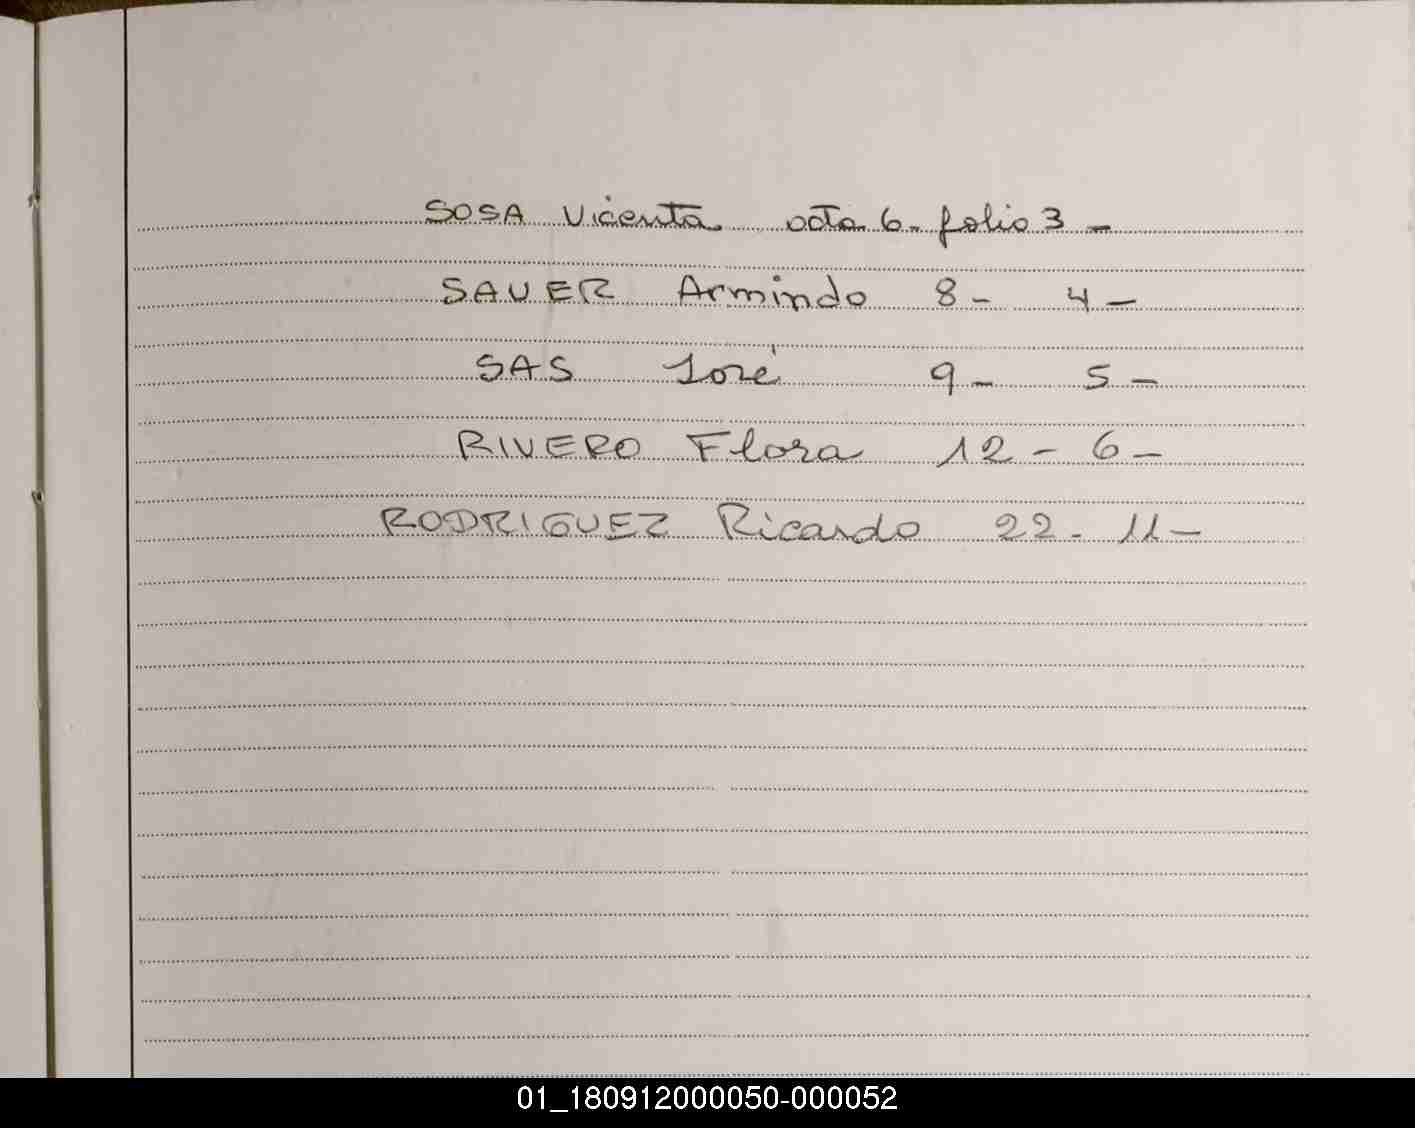 SOSA Vicenta acta 6- folio 3 -
SAUER Armindo 8 - 4 -
SAS José 9 - 5 -
RIVERO Flora 12 - 6 -
RODRIGUEZ Ricardo 22 - 11 -
01_180912000050-000052